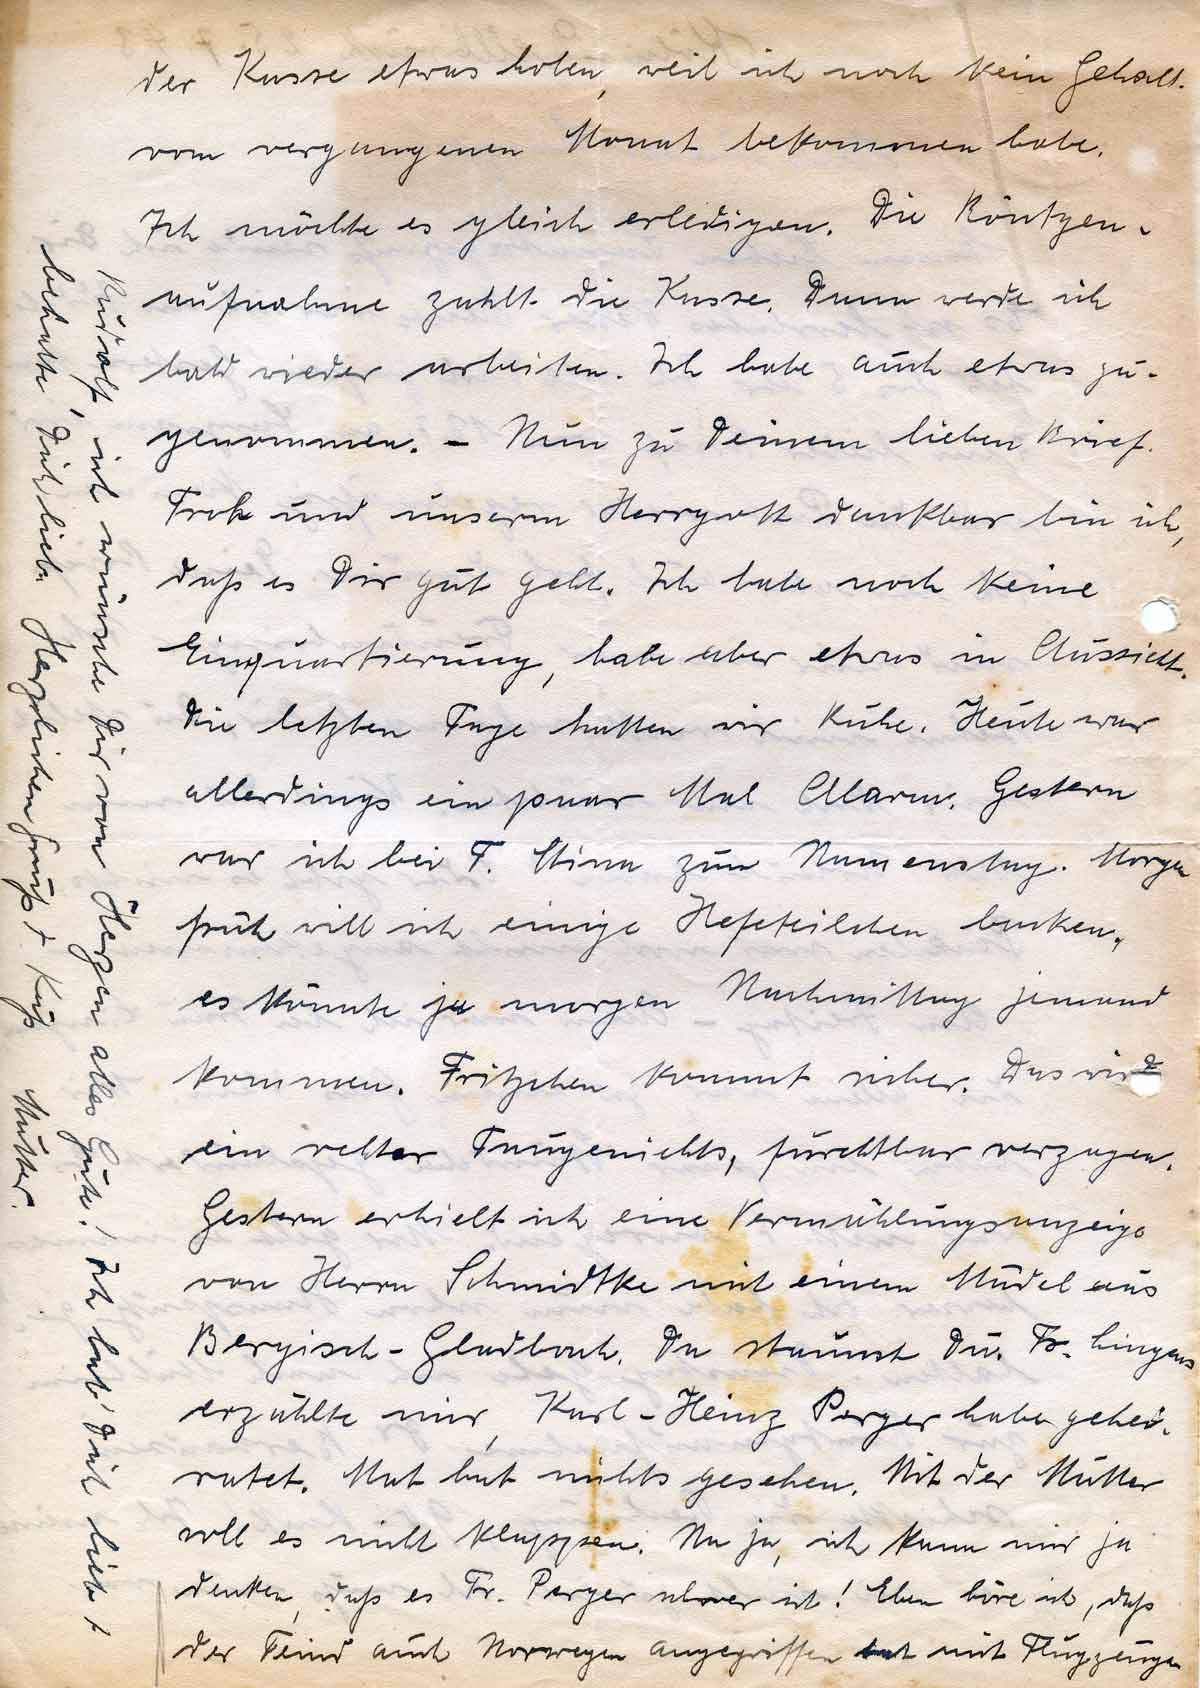 der Kasse etwas holen, weil ich noch kein Gehalt
vom vergangenen Monat bekommen habe.
Ich möchte es gleich erledigen. Die Röntgen-
aufnahme zahlt die Kasse. Dann werde ich
bald wieder arbeiten. Ich habe auch etwas zu-
genommen. – Nun zu Deinem lieben Brief.
Froh und unserm Herrgott dankbar bin ich,
daß es Dir gut geht. Ich habe noch keine
Einquartierung, habe aber etwas in Aussicht.
Die letzten Tage hatten wir Ruhe. Heute war
allerdings ein paar Mal Alarm. Gestern
war ich bei T. Stina zum Namenstag. Morgen
früh will ich einige Hefeteilchen backen,
es könnte ja morgen Nachmittag jemand
kommen. Fritzchen kommt sicher. Das wird
ein rechter Taugenichts, furchtbar verzogen.
Gestern erhielt ich eine Vermählungsanzeige
von Herrn Schmidtke mit einem Mädel aus
Bergisch-Gladbach. Da staunst Du. Fr. Lingens
erzählte mir, Karl-Heinz Perger habe gehei-
ratet. Mat hat nichts gesehen. Mit der Mutter
soll es nicht klappen. Na ja, ich kann mir ja
denken, daß es Fr. Perger schwer ist! Eben höre ich, daß
der Feind auch Norwegen angegriffen hat mit Flugzeugen
Rudolf, ich wünsche Dir von Herzen alles Gute! Ich hab' Dich lieb +
behalte Dich lieb. Herzlichen Gruß + Kuß Mutter.